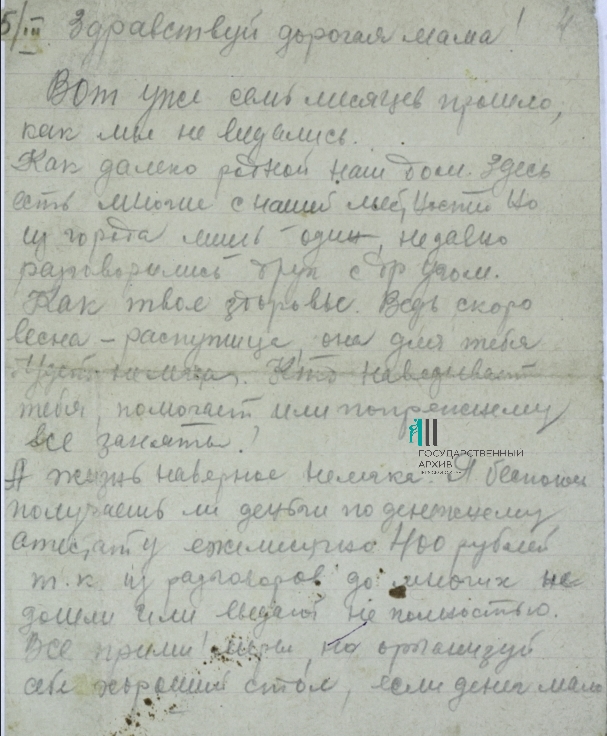 5/III Здравствуй дорогая мама! 4
Вот уже семь месяцев прошло,
как мы не видались.
Как далеко родной наш дом. Здесь
есть многие с нашей местности но
из города лишь один, недавно
разговорились друг с другом.
Как твое здоровье. Ведь скоро
весна - распутица, она для тебя
Кто наведывает
тебя, помогает или попрежнему
все заняты?
ГОСУДАРСТВЕННЫЙ
АРХИВ
А жизнь наверное нелегка. Я беспокоюсь
получаешь ли деньги по денежному
аттестату ежемесячно 400 рублей
т.к. из разговоров до многих не
дошли или выдают не полностью.
Все прими меры, но организуй
себе хороший стол, если денег мало